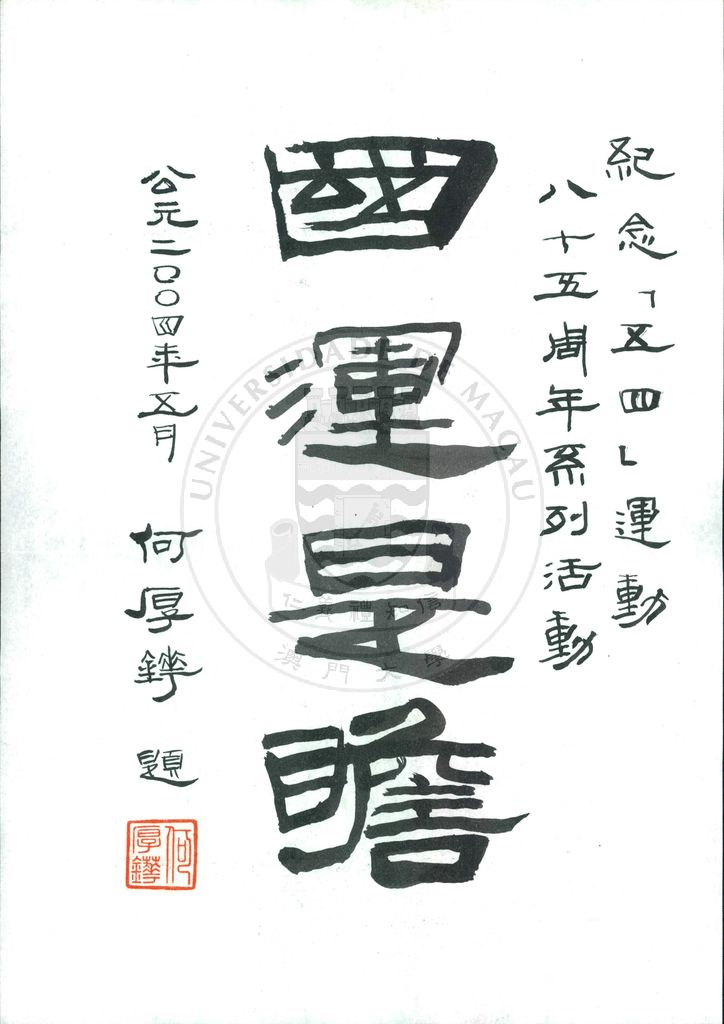 紀念「五四」運動
八十五周年系列活動
國運是瞻
公元二〇〇四年五月 何厚鏵 題
何厚鏵
UNIVERSIDADE DE MACAU
仁義禮知信
澳門大學